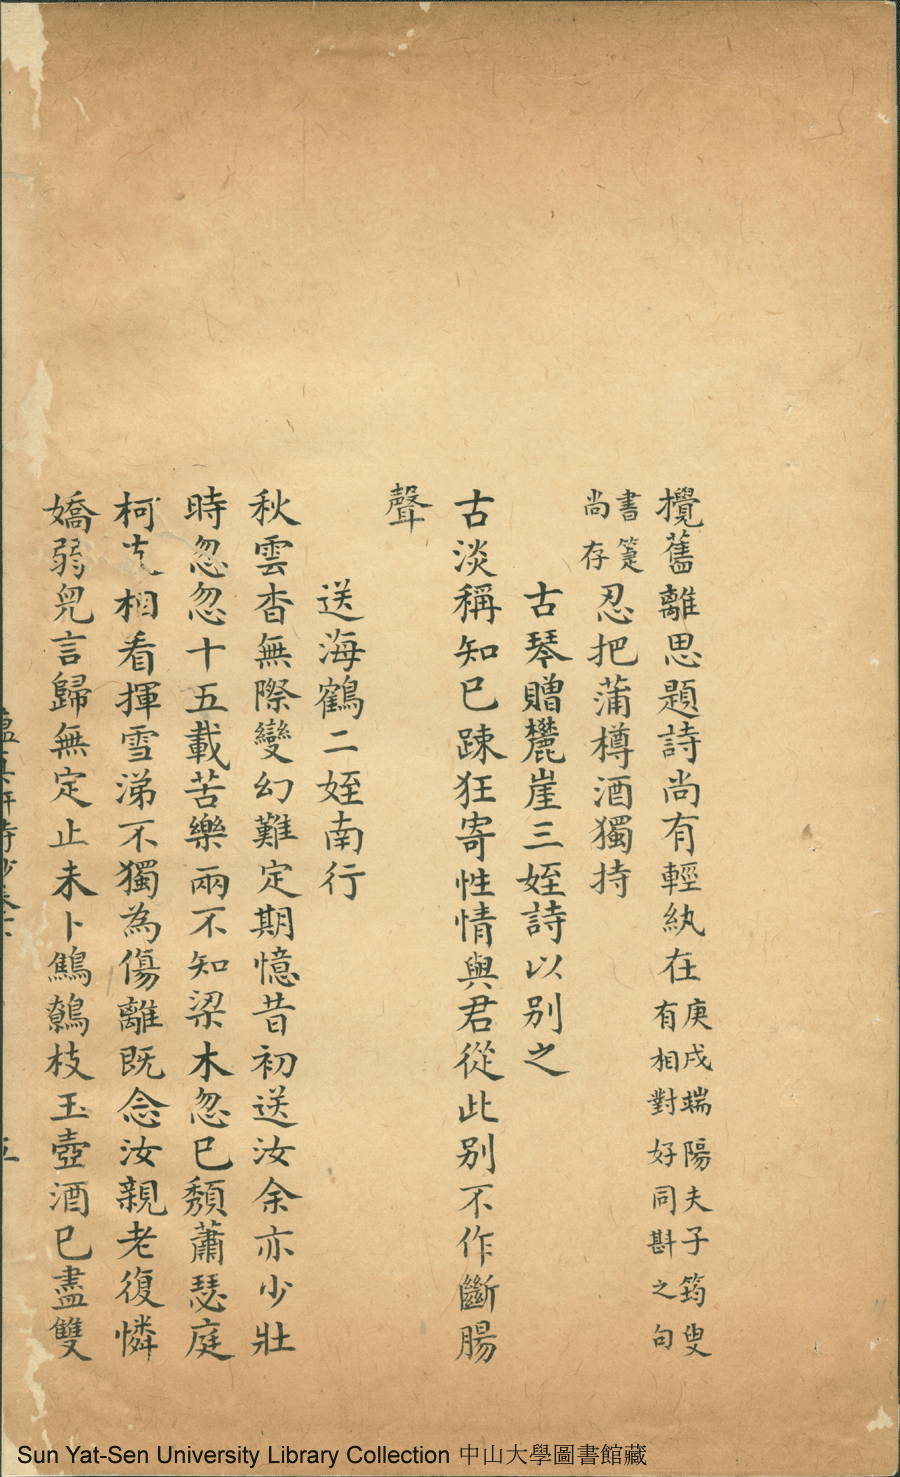 攪舊離思題詩尚有輕紈在庚戌端陽夫子筠叟有相對好同斟之句
書箑尚存忍把蒲樽酒獨持
古琴贈麓崖三姪詩以别之
古淡稱知已踈狂寄性情與君從此别不作斷腸
聲
送海鶴二姪南行
秋雲杳無際變幻難定期憶昔初送汝余亦少壯
時忽忽十五載苦樂兩不知梁木忽已頽蕭瑟庭
柯相看揮雪涕不獨為傷離既念汝親老復憐
嬌弱兒言歸無定止未卜鷦鷯枝玉壺酒已盡雙
五
Sun Yat-Sen University Library Collection 中山大學圖書館藏